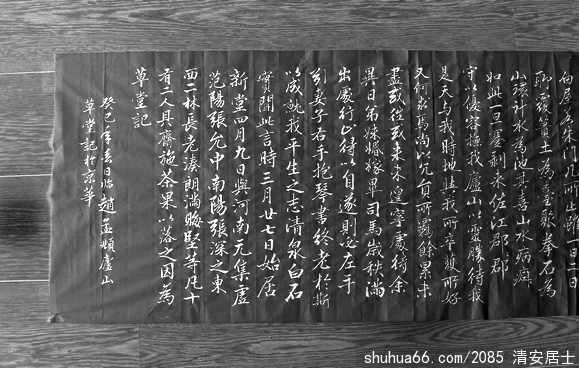 白屋若朱門凡所止雖一日二日
輒覆簣土為臺聚拳石為
山環斗水為池其喜山水病癖
如此一旦蹇剥来佐江郡郡
守以優容撫我廬山以靈勝待我
是天与我時地与我所卒獲所好
又何求焉尚以冗員所羈餘累未
盡或往或来未遑寧處待余
異日弟妹婚嫁畢司馬歲秩滿
出處行止得以自遂則必左手
引妻子右手抱琴書終老於斯
以成就我平生之志清泉白石
實聞此言時三月廿七日始居
新堂四月九日與河南元集虛
范陽張允中南陽張深之東
西二林長老湊朗滿晦堅等凡十
有二人具齋施茶果以落之因為
草堂記
癸巳年春日临趙孟頫廬山
草堂記於京華
shuhua66.com/2085 清安居士